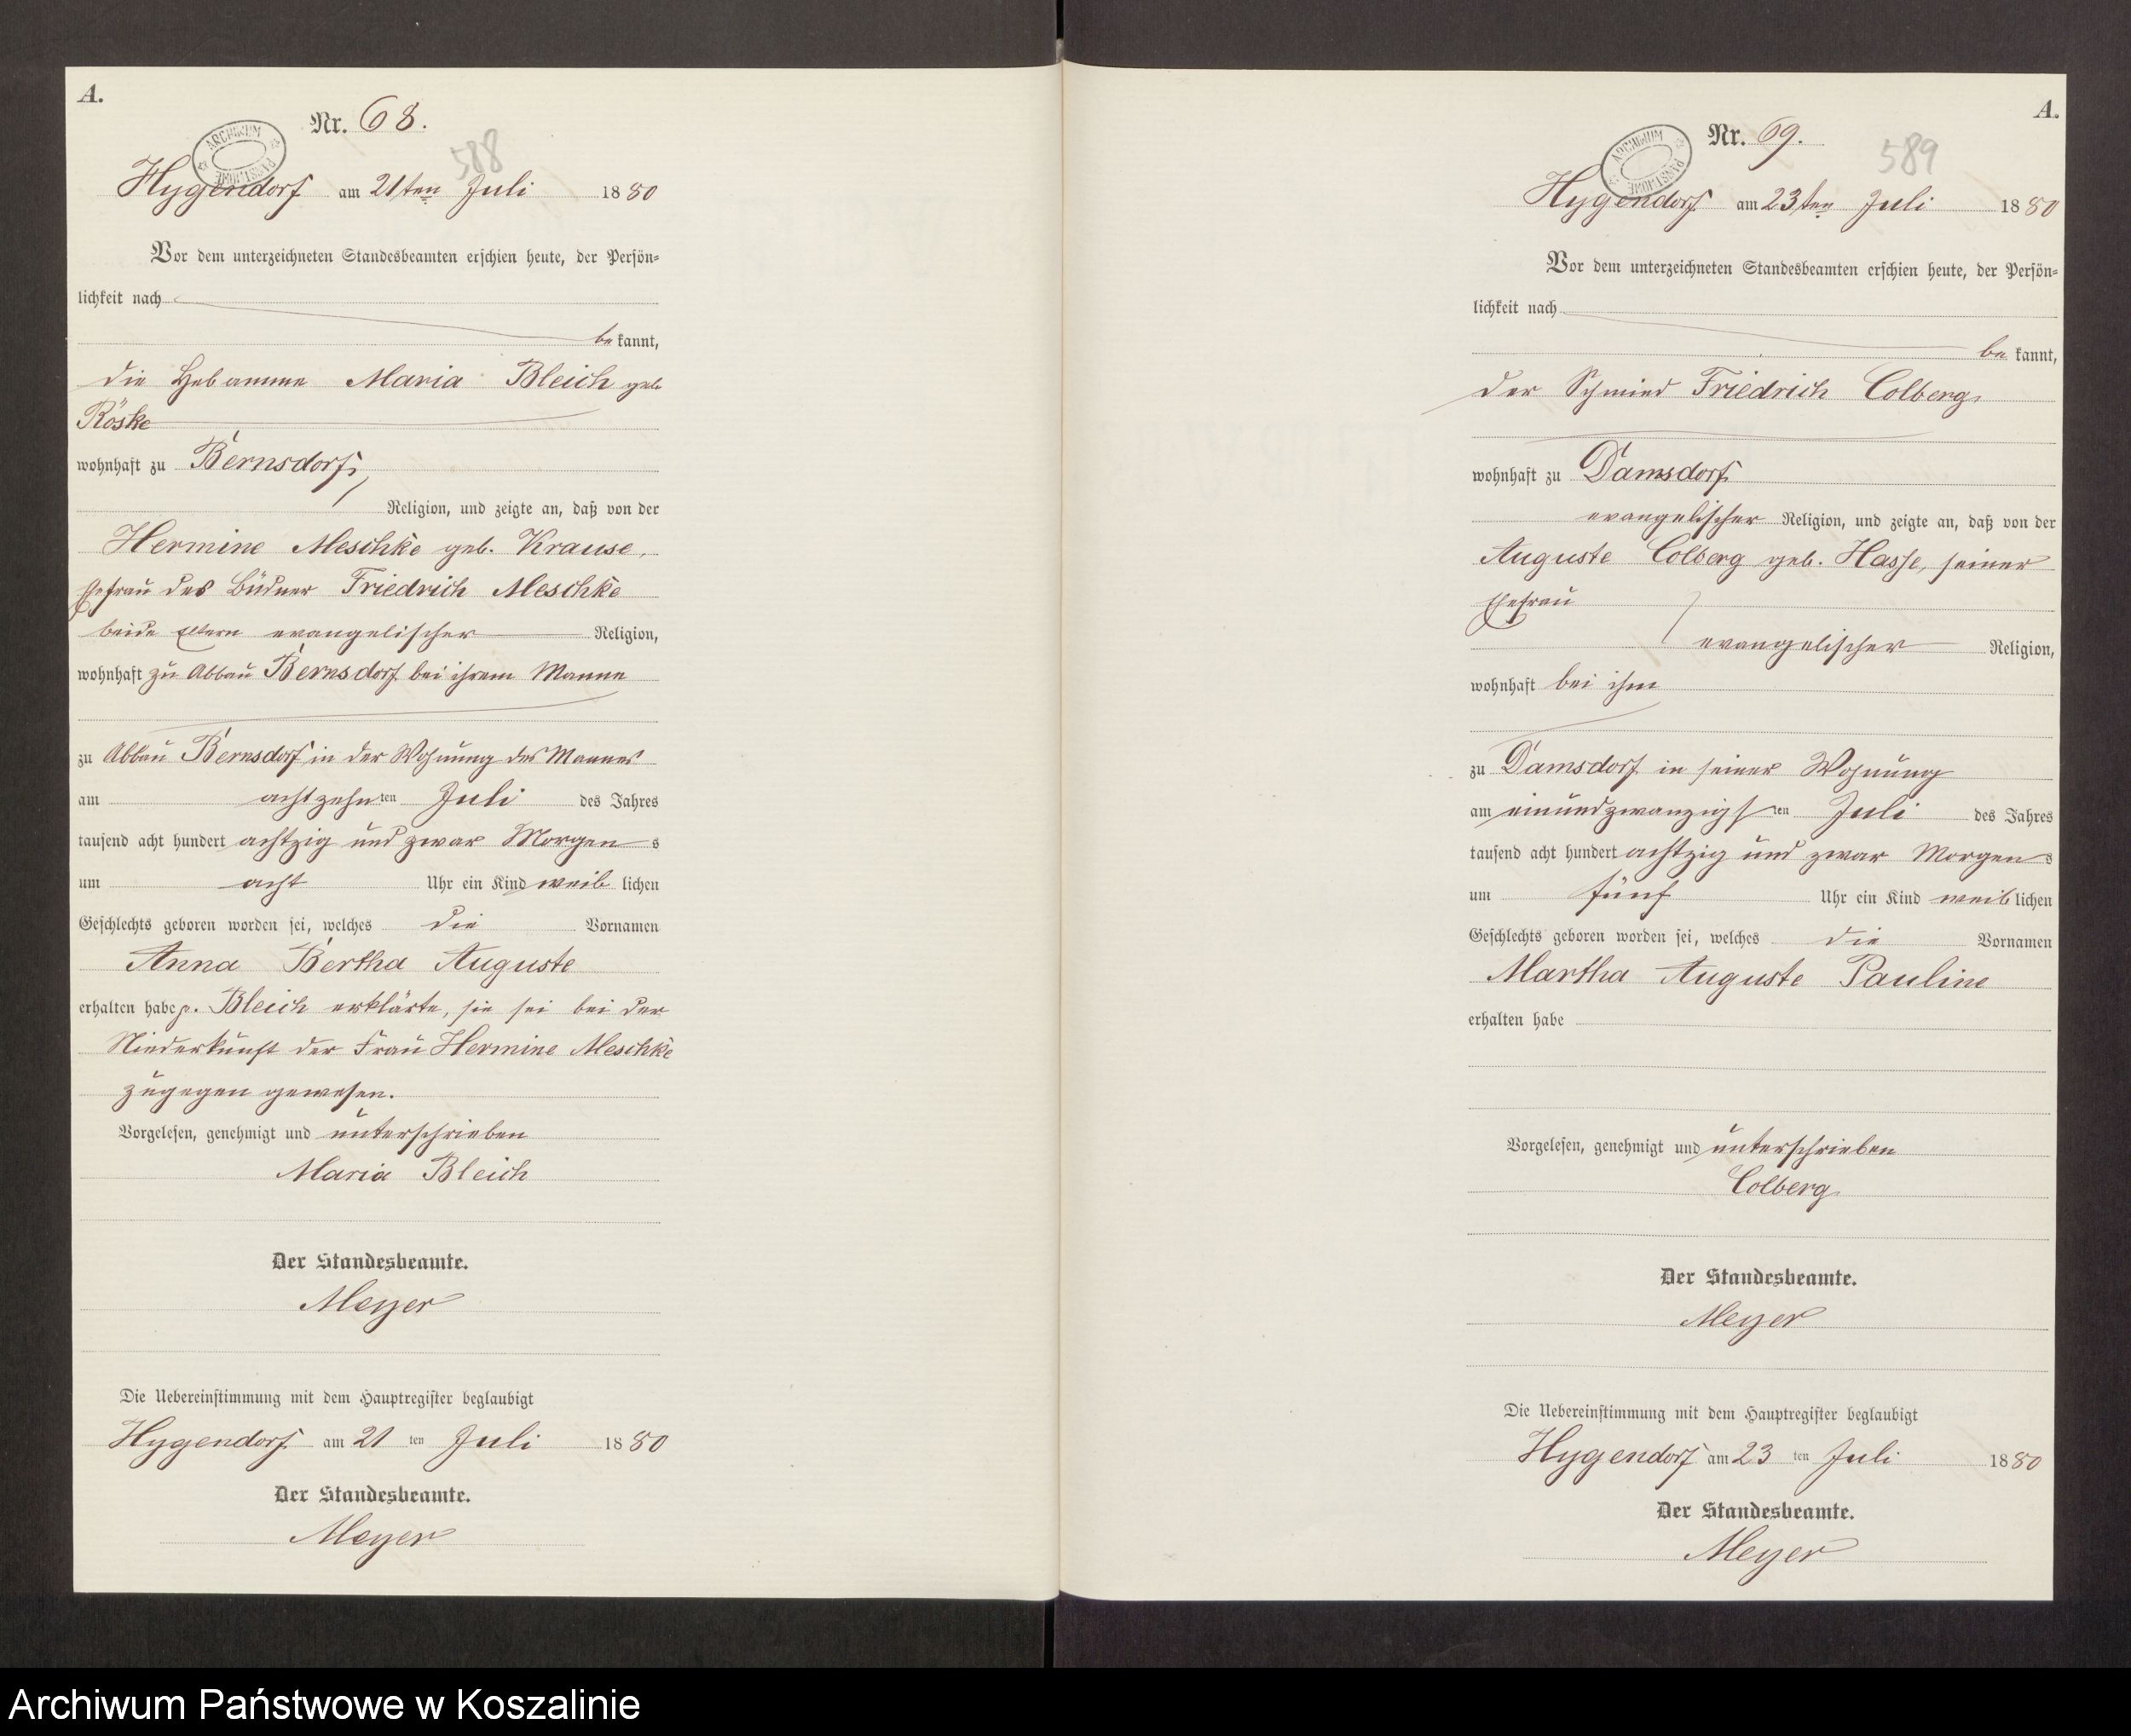 A.
Nr. 68.
588
ARCHIWUM PAŃSTWOWE
Hygendorf am 21ten Juli 1880
Vor dem unterzeichneten Standesbeamten erschien heute, der Persön-
lichkeit nach
be kannt,
die Hebamme Maria Bleich geb.
Röske
wohnhaft zu Bernsdorf,
Religion, und zeigte an, daß von der
Hermine Meschke geb. Krause,
Ehefrau des Büdner Friedrich Meschke
beide Eltern evangelischer Religion,
wohnhaft zu Abbau Bernsdorf bei ihrem Manne
zu Abbau Bernsdorf in der Wohnung des Mannes
am achtzehn ten Juli des Jahres
tausend acht hundert achtzig und zwar Morgen s
um acht Uhr ein Kind weib lichen
Geschlechts geboren worden sei, welches die Vornamen
Anna Bertha Auguste
erhalten habe p. Bleich erklärte, sie sei bei der
Niederkunft der Frau Hermine Meschke
zugegen gewesen.
Vorgelesen, genehmigt und unterschrieben
Maria Bleich
Der Standesbeamte.
Meyer
Die Uebereinstimmung mit dem Hauptregister beglaubigt
Hygendorf am 21 ten Juli 1880
Der Standesbeamte.
Meyer
A.
Nr. 69.
589
ARCHIWUM PAŃSTWOWE
Hygendorf am 23ten Juli 1880
Vor dem unterzeichneten Standesbeamten erschien heute, der Persön-
lichkeit nach
be kannt,
der Schmied Friedrich Colberg,
wohnhaft zu Damsdorf
evangelischer Religion, und zeigte an, daß von der
Auguste Colberg geb. Hasse, seiner
Ehefrau
evangelischer Religion,
wohnhaft bei ihm
zu Damsdorf in seiner Wohnung
am einundzwanzigs ten Juli des Jahres
tausend acht hundert achtzig und zwar Morgen s
um fünf Uhr ein Kind weib lichen
Geschlechts geboren worden sei, welches die Vornamen
Martha Auguste Pauline
erhalten habe
Vorgelesen, genehmigt und unterschrieben
Colberg
Der Standesbeamte.
Meyer
Die Uebereinstimmung mit dem Hauptregister beglaubigt
Hygendorf am 23 ten Juli 1880
Der Standesbeamte.
Meyer
Archiwum Państwowe w Koszalinie